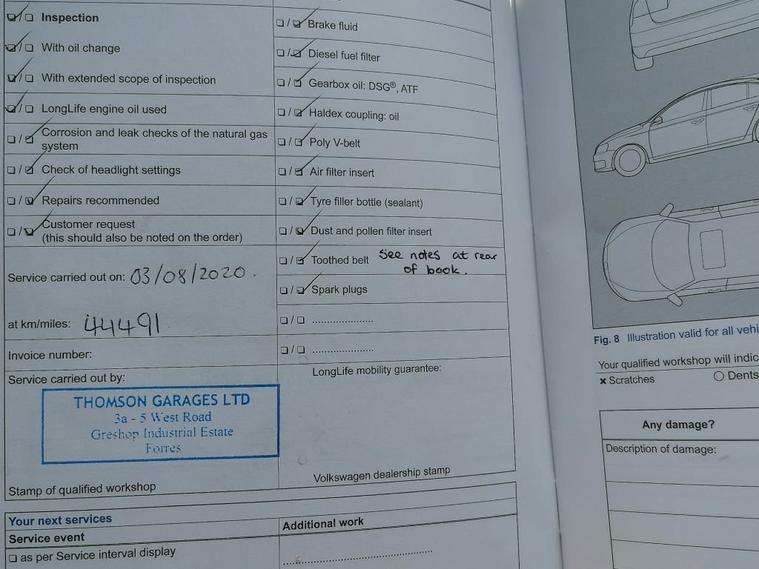 Inspection
With oil change
With extended scope of inspection
LongLife engine oil used
Corrosion and leak checks of the natural gas
system
Check of headlight settings
Repairs recommended
Customer request
(this should also be noted on the order)
Service carried out on: 03/08/2020.
at km/miles: 44491
Invoice number:
Service carried out by:
THOMSON GARAGES LTD
3a - 5 West Road
Greshop Industrial Estate
Forres
Stamp of qualified workshop
Brake fluid
Diesel fuel filter
Gearbox oil: DSG®, ATF
Haldex coupling: oil
Poly V-belt
Air filter insert
Tyre filler bottle (sealant)
Dust and pollen filter insert
Toothed belt See notes at rear
of book.
Spark plugs
LongLife mobility guarantee:
Volkswagen dealership stamp
Your next services
Service event
Additional work
as per Service interval display
Fig. 8 Illustration valid for all
Your qualified workshop will
Scratches
Dents
Any damage?
Description of damage: